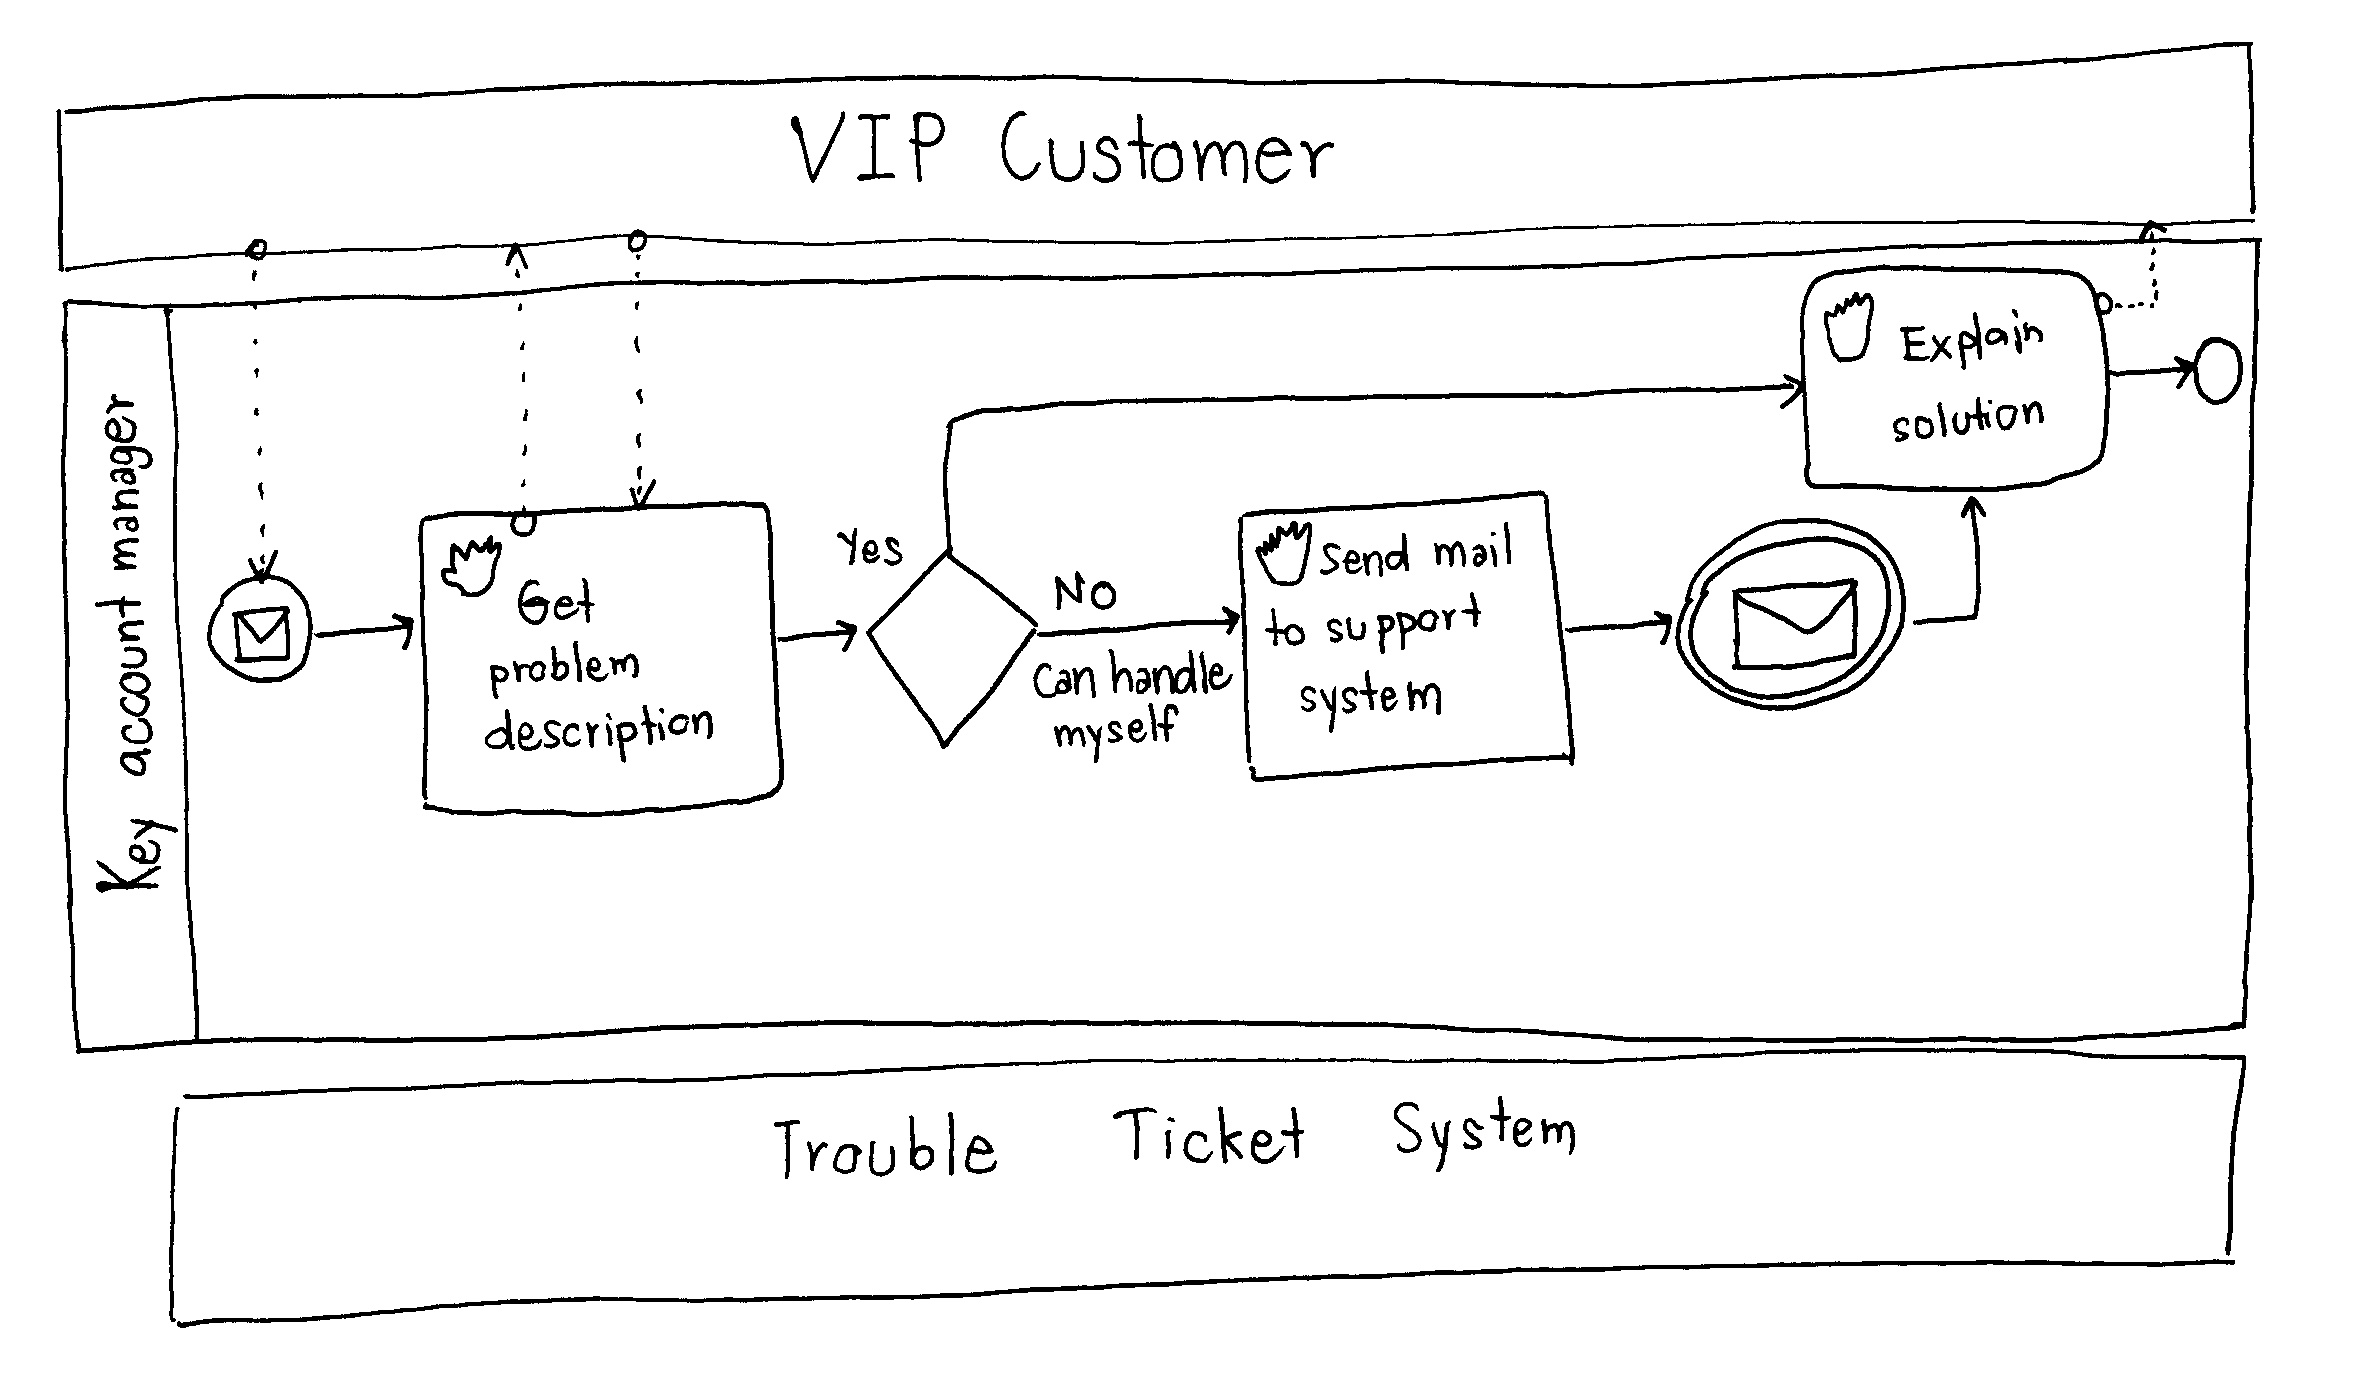 VIP Customer
Key account manager
Get
problem
description
Yes
No
Can handle
myself
Send mail
to support
system
Explain
solution
Trouble Ticket System